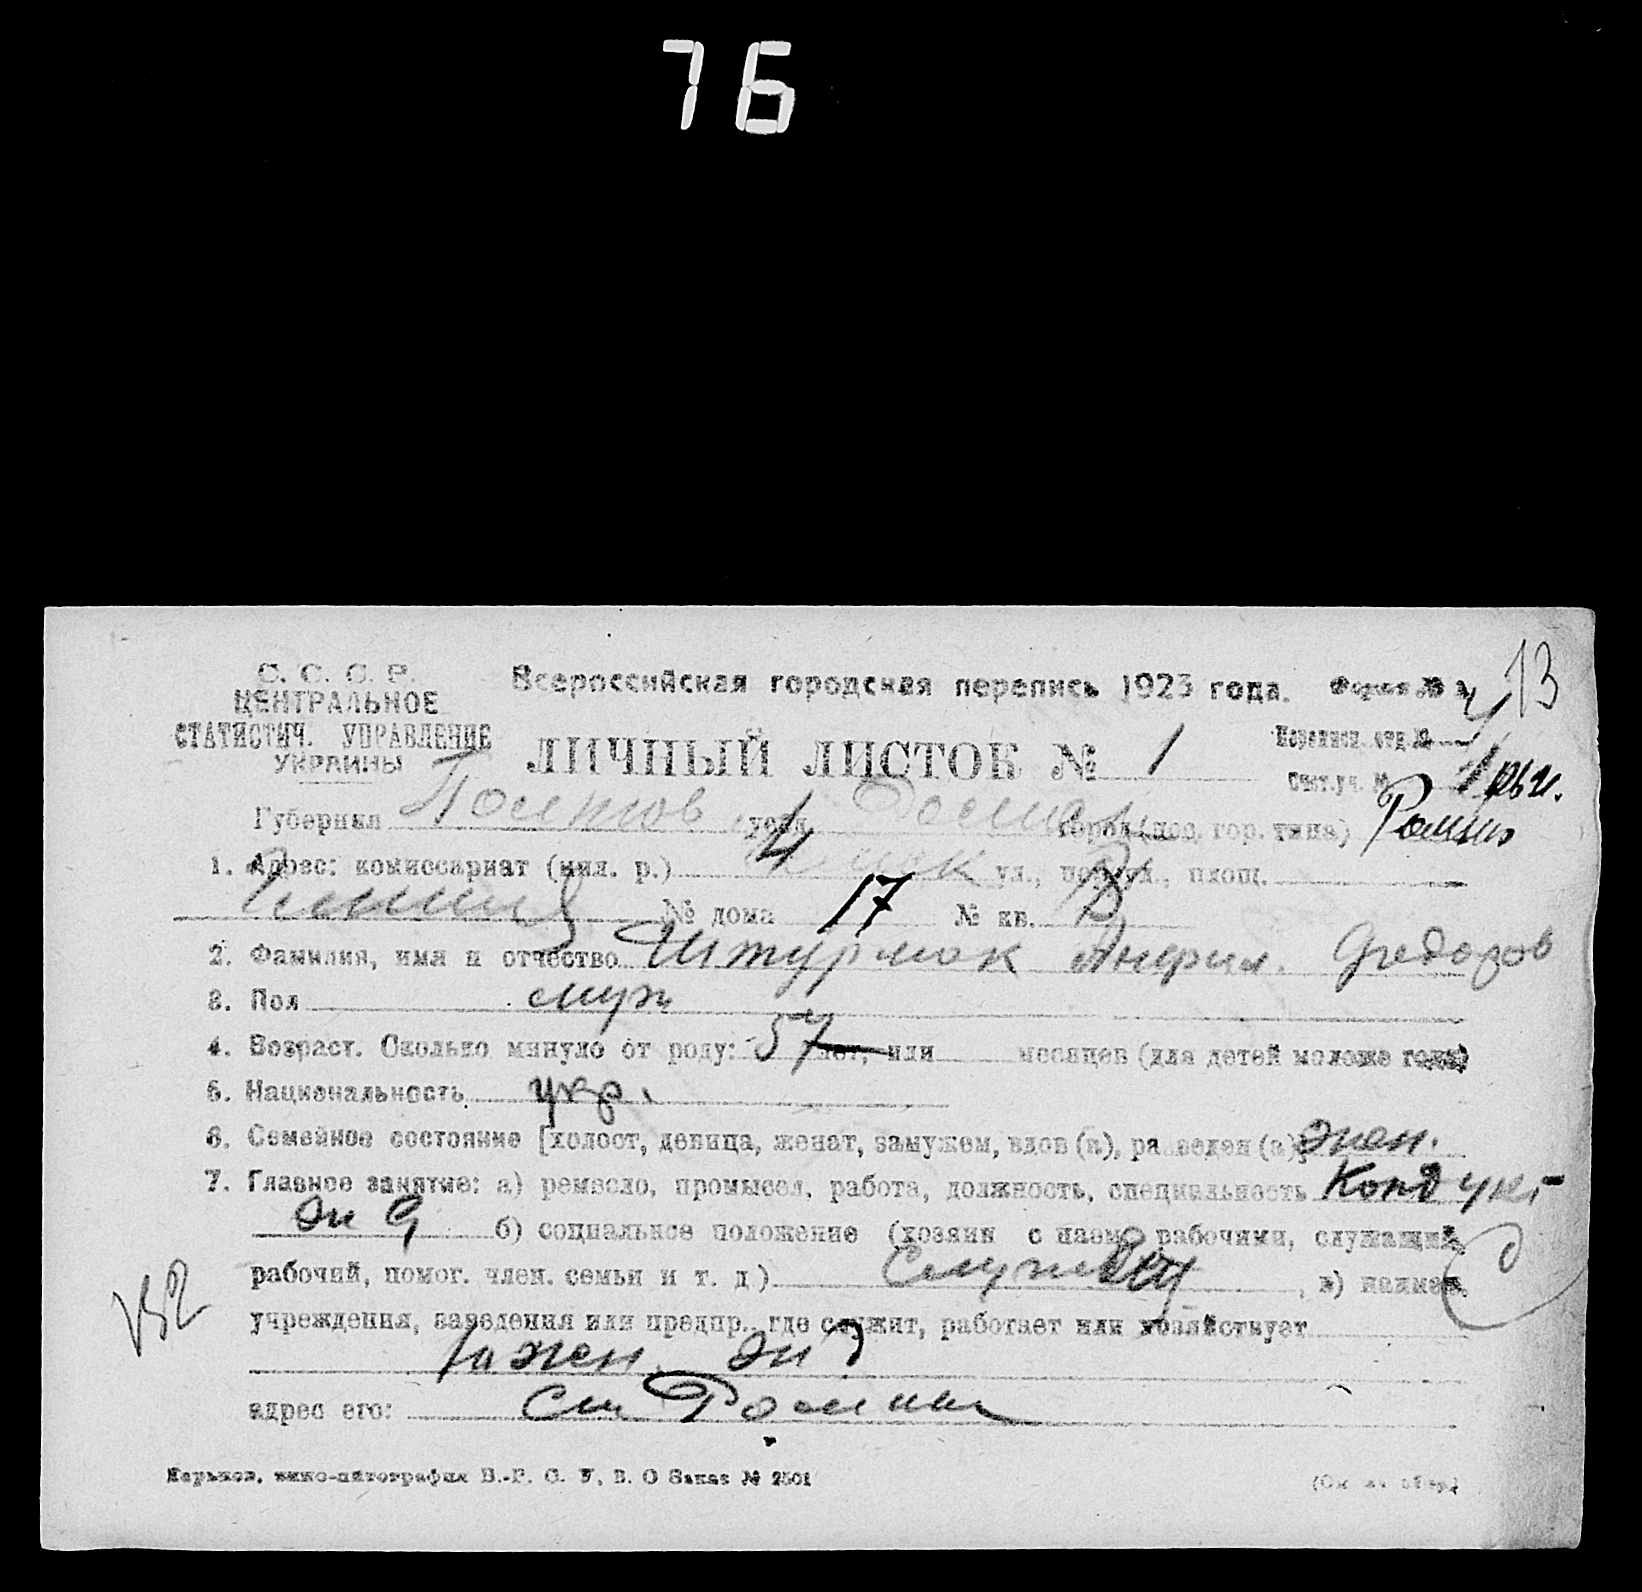 76
С. С. С. Р.
ЦЕНТРАЛЬНОЕ
СТАТИСТИЧ. УПРАВЛЕНИЕ
УКРАИНЫ
Всероссийская городская перепись 1923 года.
Форма №
13
ЛИЧНЫЙ ЛИСТОК № 1
Переписн. отд. №
Счетн. уч. № 1
Губерния Полтов уезд Ромен город (пос. гор. типа) Ромны
1. Адрес: комиссариат (мил. р.) 4 ул., переул., площ.
№ дома 17 № кв.
2. Фамилия, имя и отчество Штурмак Федоров
3. Пол муж
4. Возраст. Сколько минуло от роду: 57 лет, или месяцев (для детей моложе года)
5. Национальность укр.
6. Семейное состояние [холост, девица, женат, замужем, вдов (а), разведен (а)] жен.
7. Главное занятие: а) ремесло, промысел, работа, должность, специальность Кондукт
б) социальное положение (хозяин с наемн. рабочими, служащий,
рабочий, помог. член. семьи и т. д.) Служащ, в) наимен.
учреждения, заведения или предпр., где служит, работает или хозяйствует
адрес его: Ст Ромны
Харьков, В. О Заказ № 2501
(См на обор.)